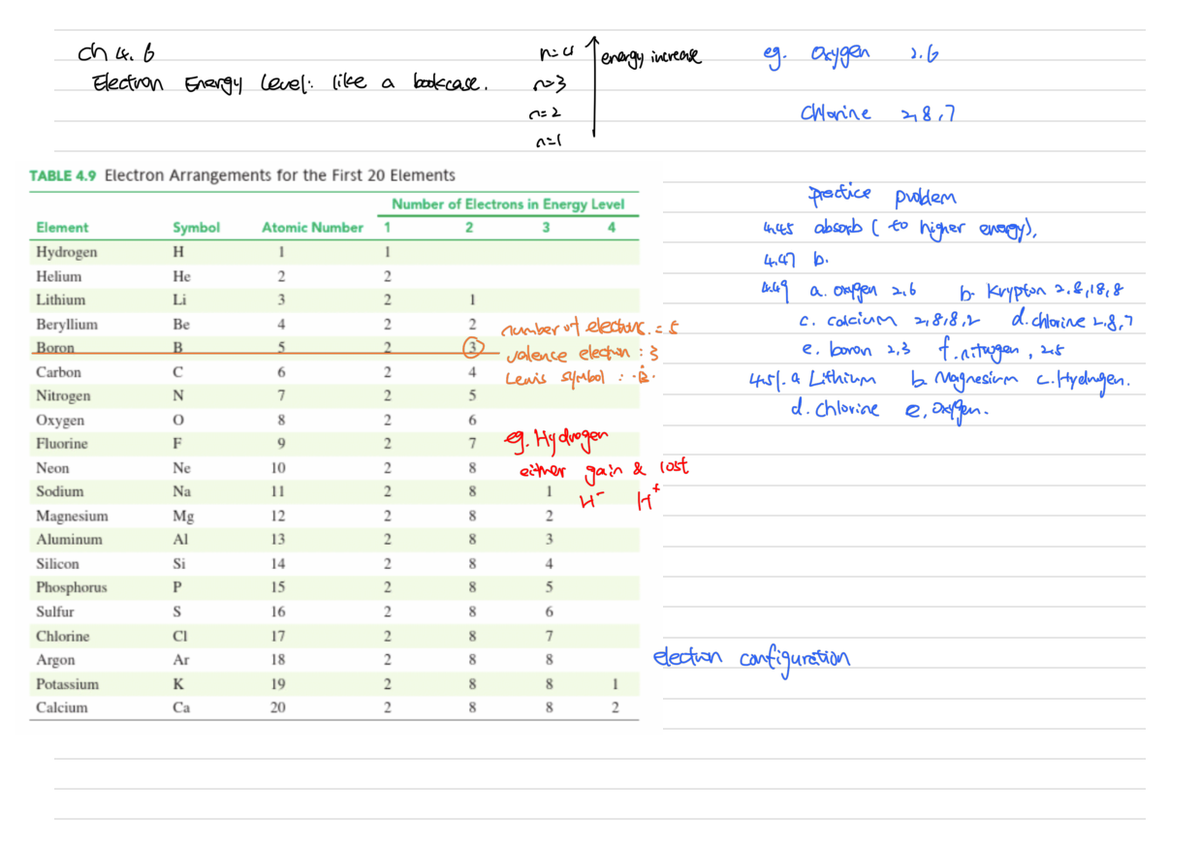 ch 4.6
Electron Energy Level: like a bookcase.
n=4
n=3
n=2
n=1
energy increase
eg. Oxygen 2.6
Chlorine 2,8,7
TABLE 4.9 Electron Arrangements for the First 20 Elements
Number of Electrons in Energy Level
Element Symbol Atomic Number 1 2 3 4
Hydrogen H 1 1
Helium He 2 2
Lithium Li 3 2 1
Beryllium Be 4 2 2
Boron B 5 2 3
Carbon C 6 2 4
Nitrogen N 7 2 5
Oxygen O 8 2 6
Fluorine F 9 2 7
Neon Ne 10 2 8
Sodium Na 11 2 8 1
Magnesium Mg 12 2 8 2
Aluminum Al 13 2 8 3
Silicon Si 14 2 8 4
Phosphorus P 15 2 8 5
Sulfur S 16 2 8 6
Chlorine Cl 17 2 8 7
Argon Ar 18 2 8 8
Potassium K 19 2 8 8 1
Calcium Ca 20 2 8 8 2
number of electrons. = 5
valence electron : 3
Lewis symbol : ·Ḃ·
eg. Hydrogen
either gain & lost
H⁻ H⁺
practice problem
4.45 absorb ( to higher energy),
4.47 b.
4.49 a. oxygen 2,6 b. Krypton 2.8,18,8
c. calcium 2,8,8,2 d. chlorine 2,8,7
e. boron 2,3 f. nitrogen, 2,5
4.51. a Lithium b. Magnesium c. Hydrogen.
d. chlorine e, oxygen.
electron configuration